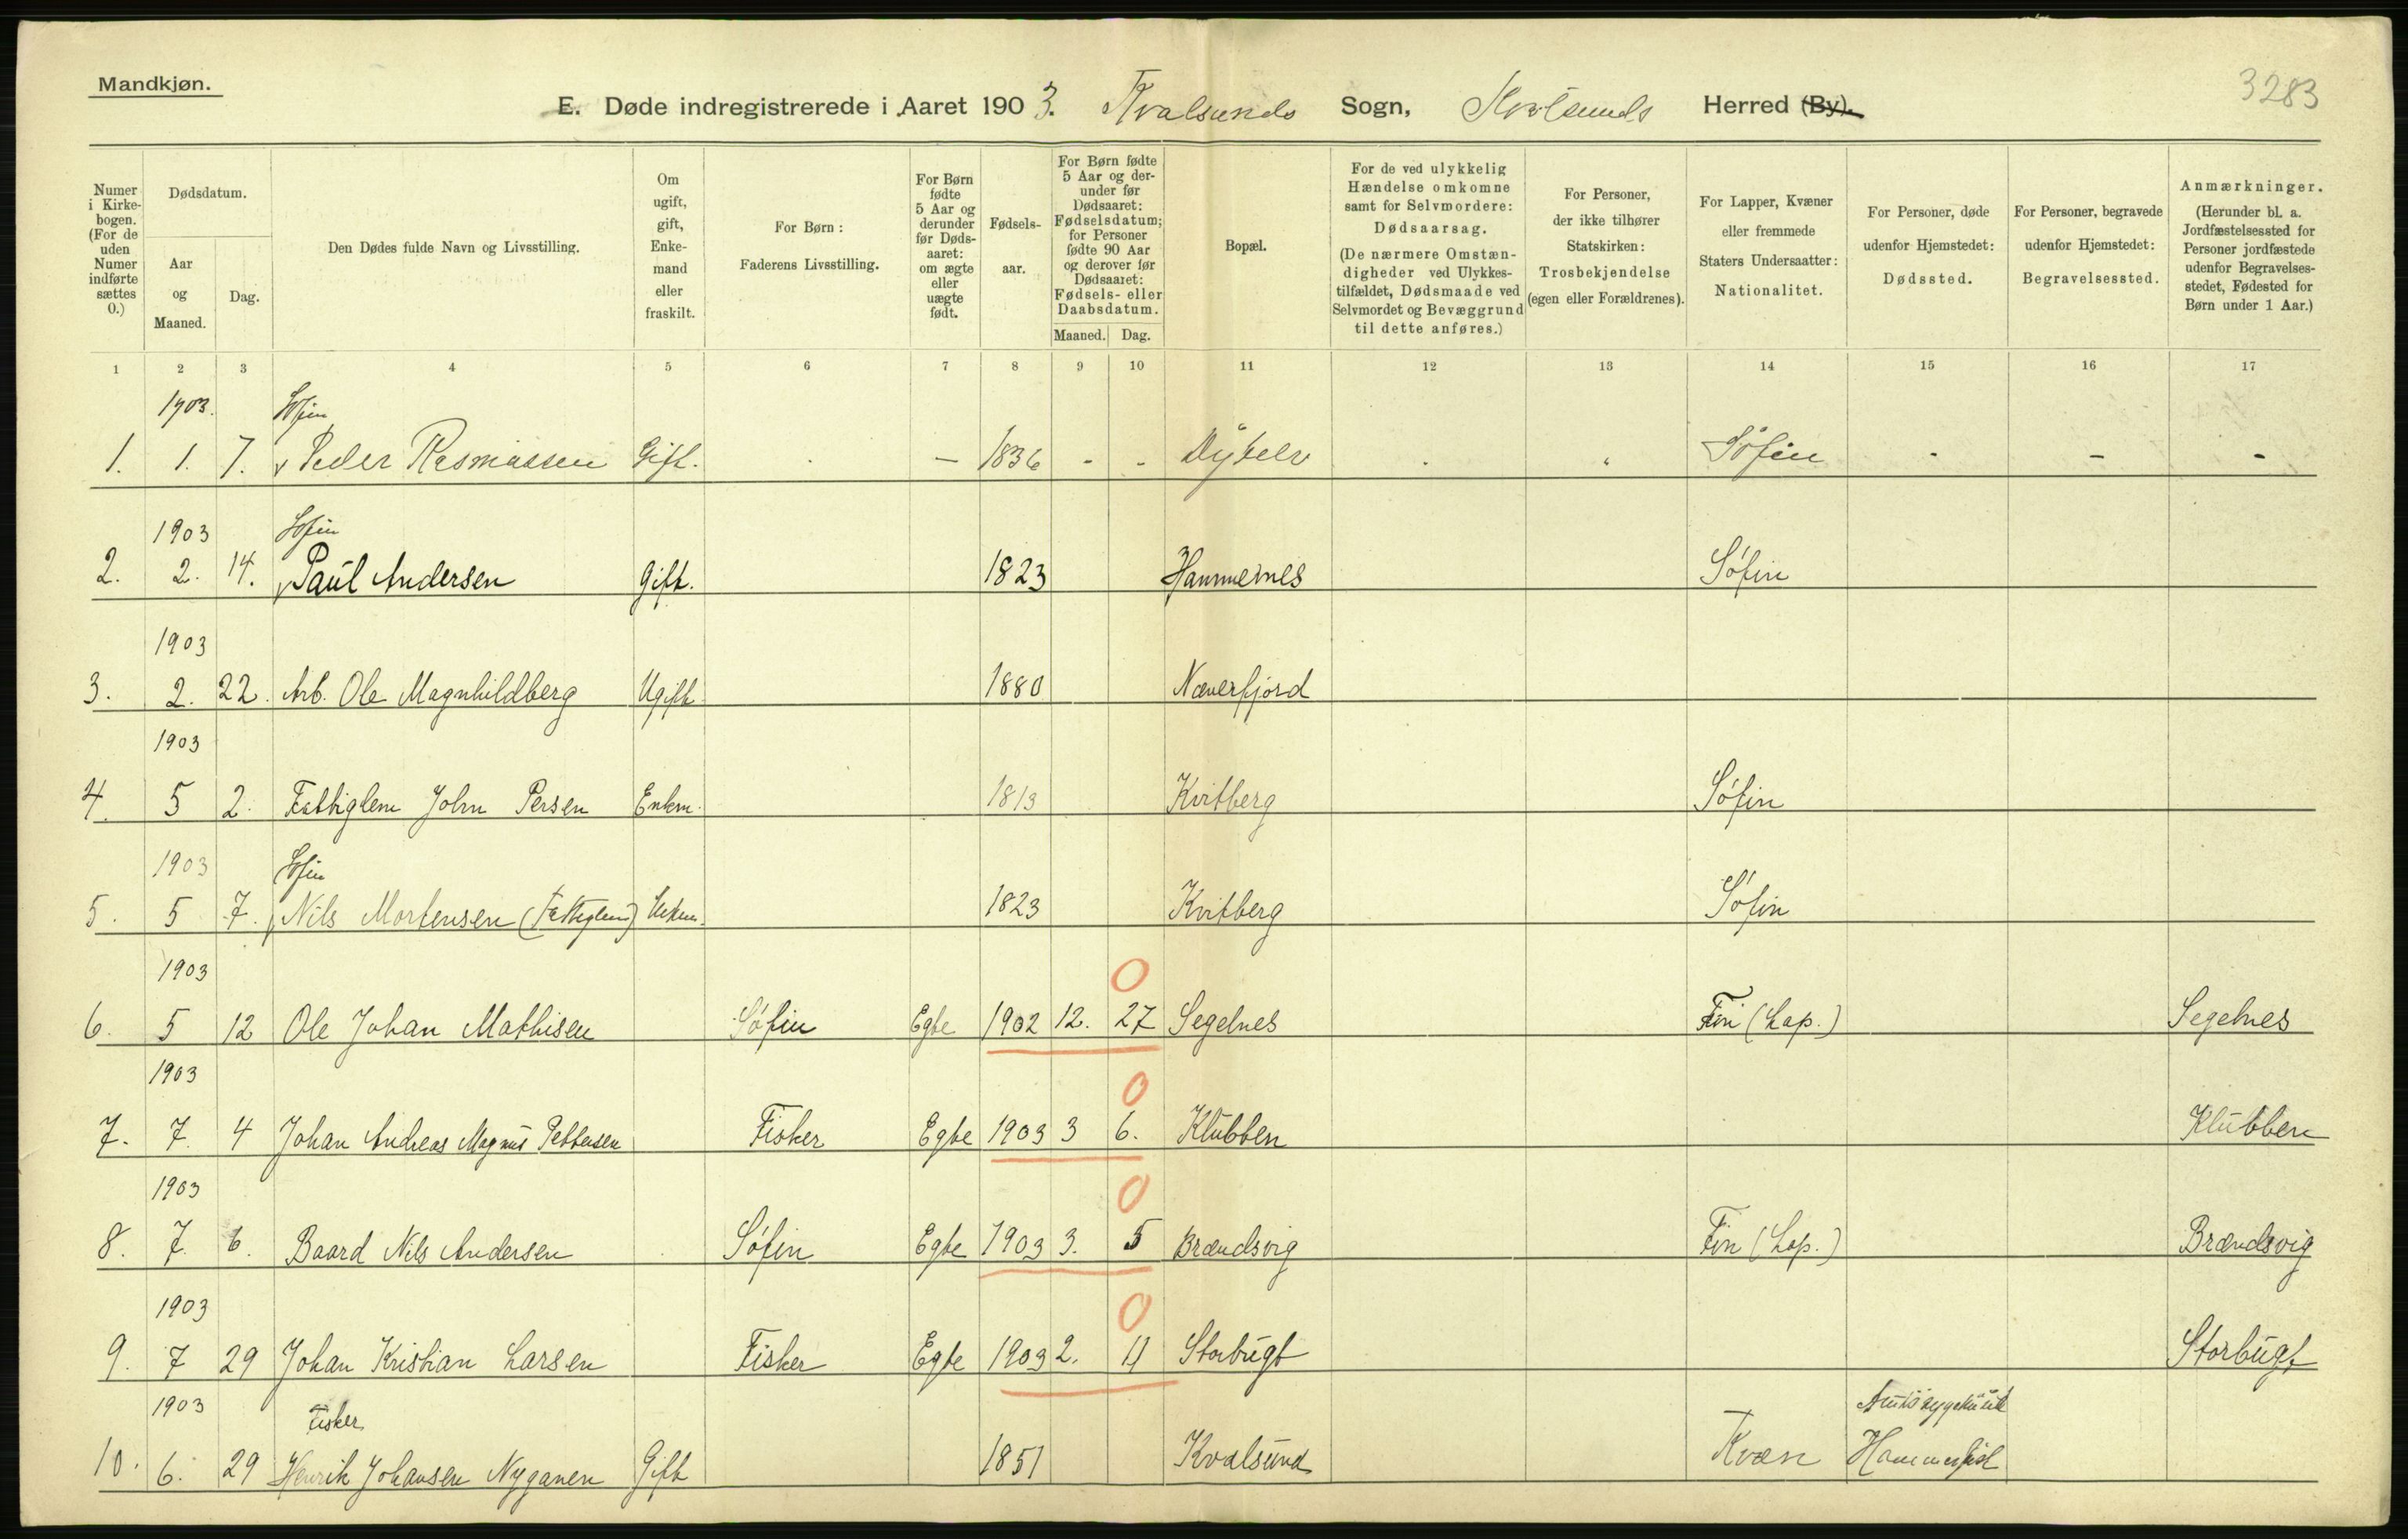 Mandkjøn.
3283
E. Døde indregistrerede i Aaret 1903. Kvalsunds Sogn, Kvalsunds Herred (By).
Numer i Kirke-bogen. (For de uden Numer indførte sættes 0.)
Dødsdatum.
Aar og Maaned.
Dag.
Den Dødes fulde Navn og Livsstilling.
Om ugift, gift, Enke-mand eller fraskilt.
For Børn: Faderens Livsstilling.
For Børn fødte 5 Aar og derunder før Døds-aaret: om ægte eller uægte født.
Fødsels-aar.
For Børn fødte 5 Aar og der-under før Dødsaaret: Fødselsdatum; for Personer fødte 90 Aar og derover før Dødsaaret: Fødsels- eller Daabsdatum.
Maaned. Dag.
Bopæl.
For de ved ulykkelig Hændelse omkomne samt for Selvmordere: Dødsaarsag. (De nærmere Omstæn-digheder ved Ulykkes-tilfældet, Dødsmaade ved Selvmordet og Bevæggrund til dette anføres.)
For Personer, der ikke tilhører Statskirken: Trosbekjendelse (egen eller Forældrenes).
For Lapper, Kvæner eller fremmede Staters Undersaatter: Nationalitet.
For Personer, døde udenfor Hjemstedet: Dødssted.
For Personer, begravede udenfor Hjemstedet: Begravelsessted.
Anmærkninger. (Herunder bl. a. Jordfæstelsessted for Personer jordfæstede udenfor Begravelses-stedet, Fødested for Børn under 1 Aar.)
1 2 3 4 5 6 7 8 9 10 11 12 13 14 15 16 17
1903. Søfin
1. 1. 7. Peder Rasmussen Gift. - 1836 - - - Søfin - - -
1903 Søfin
2. 2. 14. Paul Andersen Gift. 1823 Hammernes Søfin
1903
3. 2. 22. Arb. Ole Magnhildberg Ugift. 1880 Næverfjord
1903
4. 5 2. Fattiglem John Persen Enkem. 1813 Kvitberg Søfin
1903 Søfin
5. 5 7. Nils Mortensen (Fattiglem) Enkem. 1823 Kvitberg Søfin
1903 0
6. 5 12 Ole Johan Mathisen Søfin Egte 1902 12. 27 Segelnes Fin (Lap.) Segelnes
1903 0
7. 7. 4 Johan Andreas Magnus Pettersen Fisker Egte 1903 3 6. Klubben Klubben
1903 0
8. 7. 6. Baard Nils Andersen Søfin Egte 1903 3. 5 Brændsvig Fin (Lap.) Brændsvig
1903 0
9. 7 29 Johan Kristian Larsen Fisker Egte 1903 2. 11 Storbugt Storbugt
1903 Fisker Amtssygehuset
10. 6. 29 Henrik Johansen Nyganen Gift 1851 Kvalsund Kvæn Hammerfest